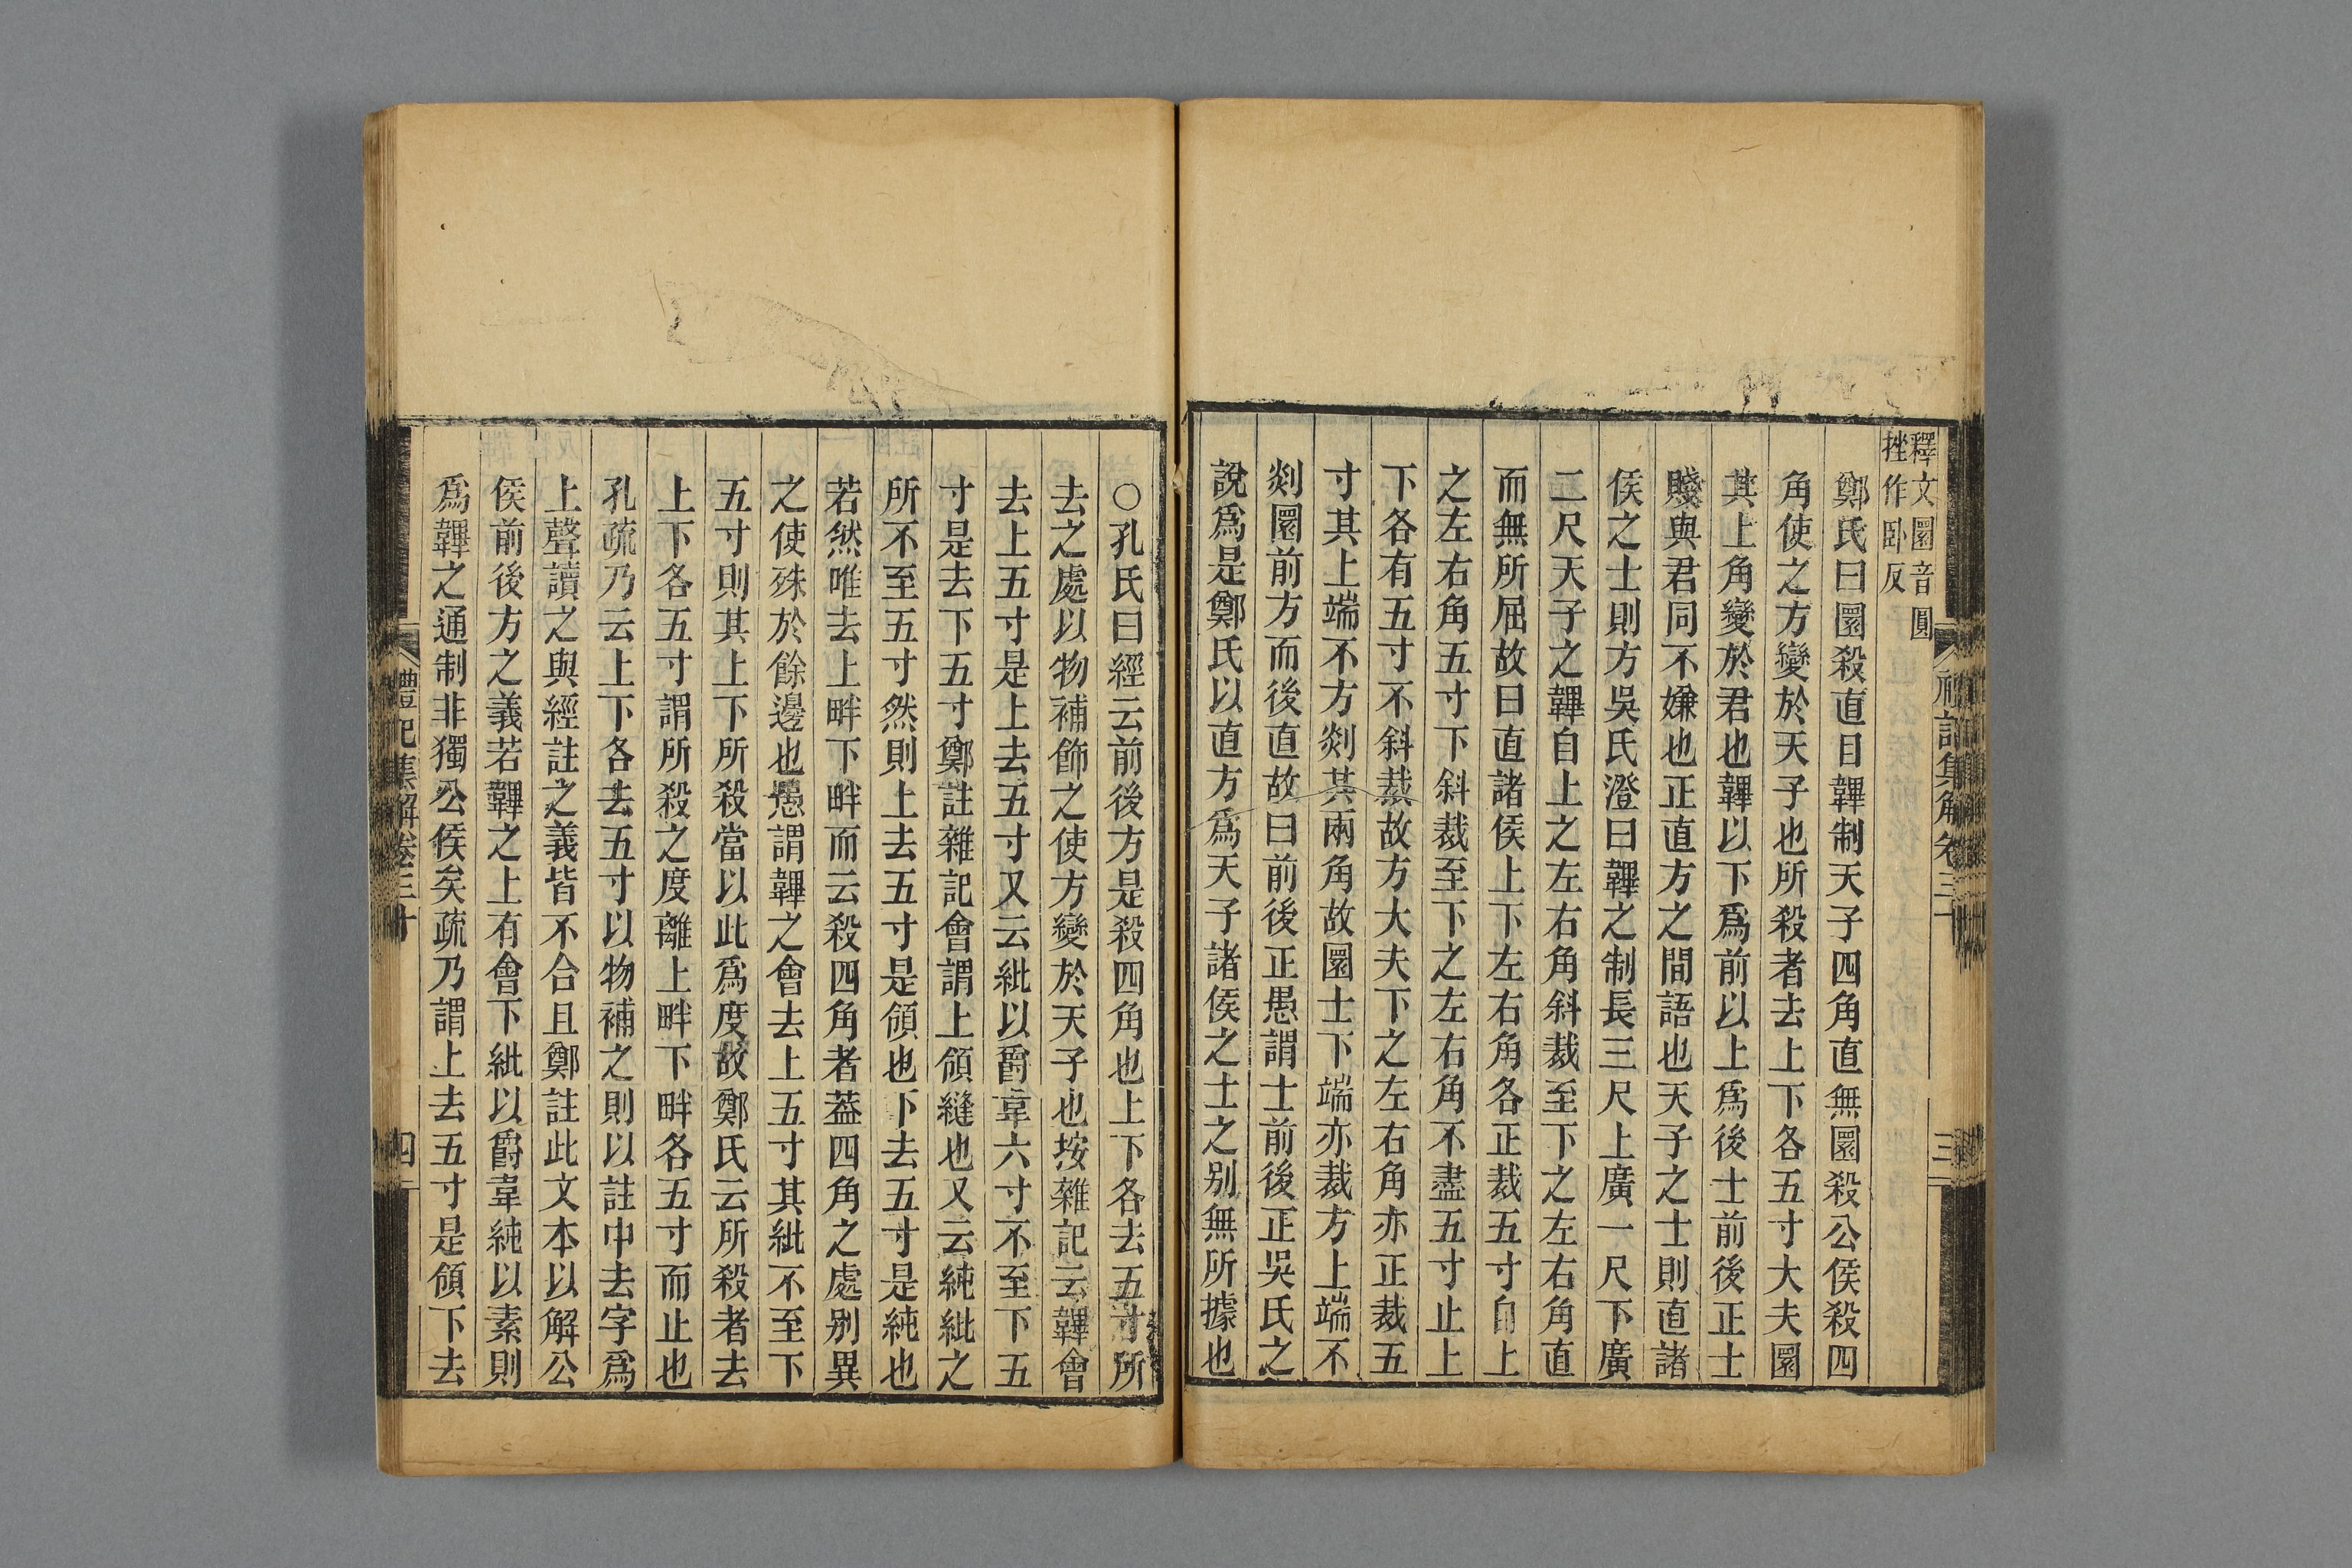 釋文圜音圓
挫作臥反
鄭氏曰圜殺直目韠制天子四角直無圜殺公侯殺四
角使之方變於天子也所殺者去上下各五寸大夫圜
其上角變於君也韠以下爲前以上爲後士前後正士
賤與君同不嫌也正直方之間語也天子之士則直諸
侯之士則方吳氏澄曰韠之制長三尺上廣一尺下廣
二尺天子之韠自上之左右角斜裁至下之左右角直
而無所屈故曰直諸侯上下左右角各正裁五寸自上
之左右角五寸下斜裁至下之左右角不盡五寸止上
下各有五寸不斜裁故方大夫下之左右角亦正裁五
寸其上端不方剡其兩角故圜士下端亦裁方上端不
剡圜前方而後直故曰前後正愚謂士前後正吳氏之
說爲是鄭氏以直方爲天子諸侯之士之别無所據也
禮記集解卷三十
三
○孔氏曰經云前後方是殺四角也上下各去五寸所
去之處以物補飾之使方變於天子也按雜記云韠會
去上五寸是上去五寸又云紕以爵韋六寸不至下五
寸是去下五寸鄭註雜記會謂上領縫也又云純紕之
所不至五寸然則上去五寸是領也下去五寸是純也
若然唯去上畔下畔而云殺四角者葢四角之處别異
之使殊於餘邊也愚謂韠之會去上五寸其紕不至下
五寸則其上下所殺當以此爲度故鄭氏云所殺者去
上下各五寸謂所殺之度離上畔下畔各五寸而止也
孔疏乃云上下各去五寸以物補之則以註中去字爲
上聲讀之與經註之義皆不合且鄭註此文本以解公
侯前後方之義若韠之上有會下紕以爵韋純以素則
爲韠之通制非獨公侯矣疏乃謂上去五寸是領下去
禮記集解卷三十
四